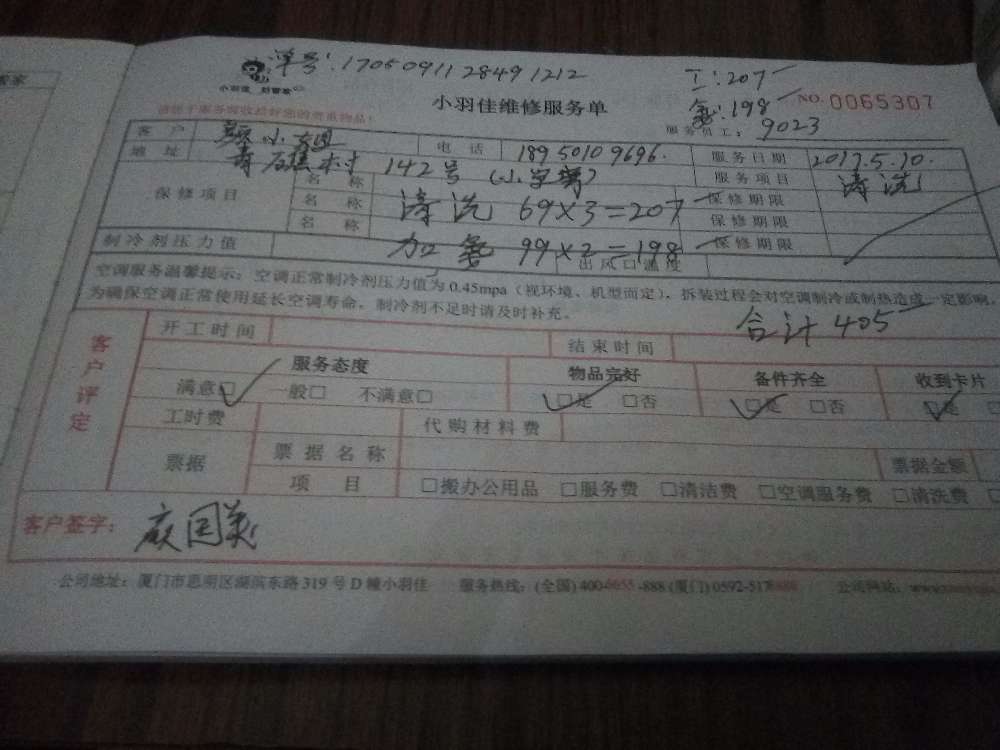 单号:17050911284912​12
工:207
小羽佳 好管家
小羽佳维修服务单
氟:198
NO. 0065307
服务员工: 9023
客户 小姐 电话 18950109696 服务日期 2017.5.10.
地址 142号(小学旁) 服务项目 清洗
保修项目 名称 保修期限
名称 清洗 69×3=207 保修期限
名称 加氟 99×2=198 保修期限
制冷剂压力值 出风口温度
空调服务温馨提示:空调正常制冷剂压力值为0.45mpa(视环境、机型而定),拆装过程会对空调制冷或制热造成一定影响,
为确保空调正常使用延长空调寿命,制冷剂不足时请及时补充。
合计405
客户评定
开工时间 结束时间
服务态度 物品完好 备件齐全 收到卡片
满意□ 一般□ 不满意□ □是 □否 □是 □否 □是
工时费 代购材料费
票据 票据名称 票据金额
项目 □搬办公用品 □服务费 □清洁费 □空调服务费 □清洗费
客户签字:
公司地址:厦门市思明区 东路319号D幢小羽佳 服务热线:(全国)400-6655-888 (厦门)0592-517 公司网站: